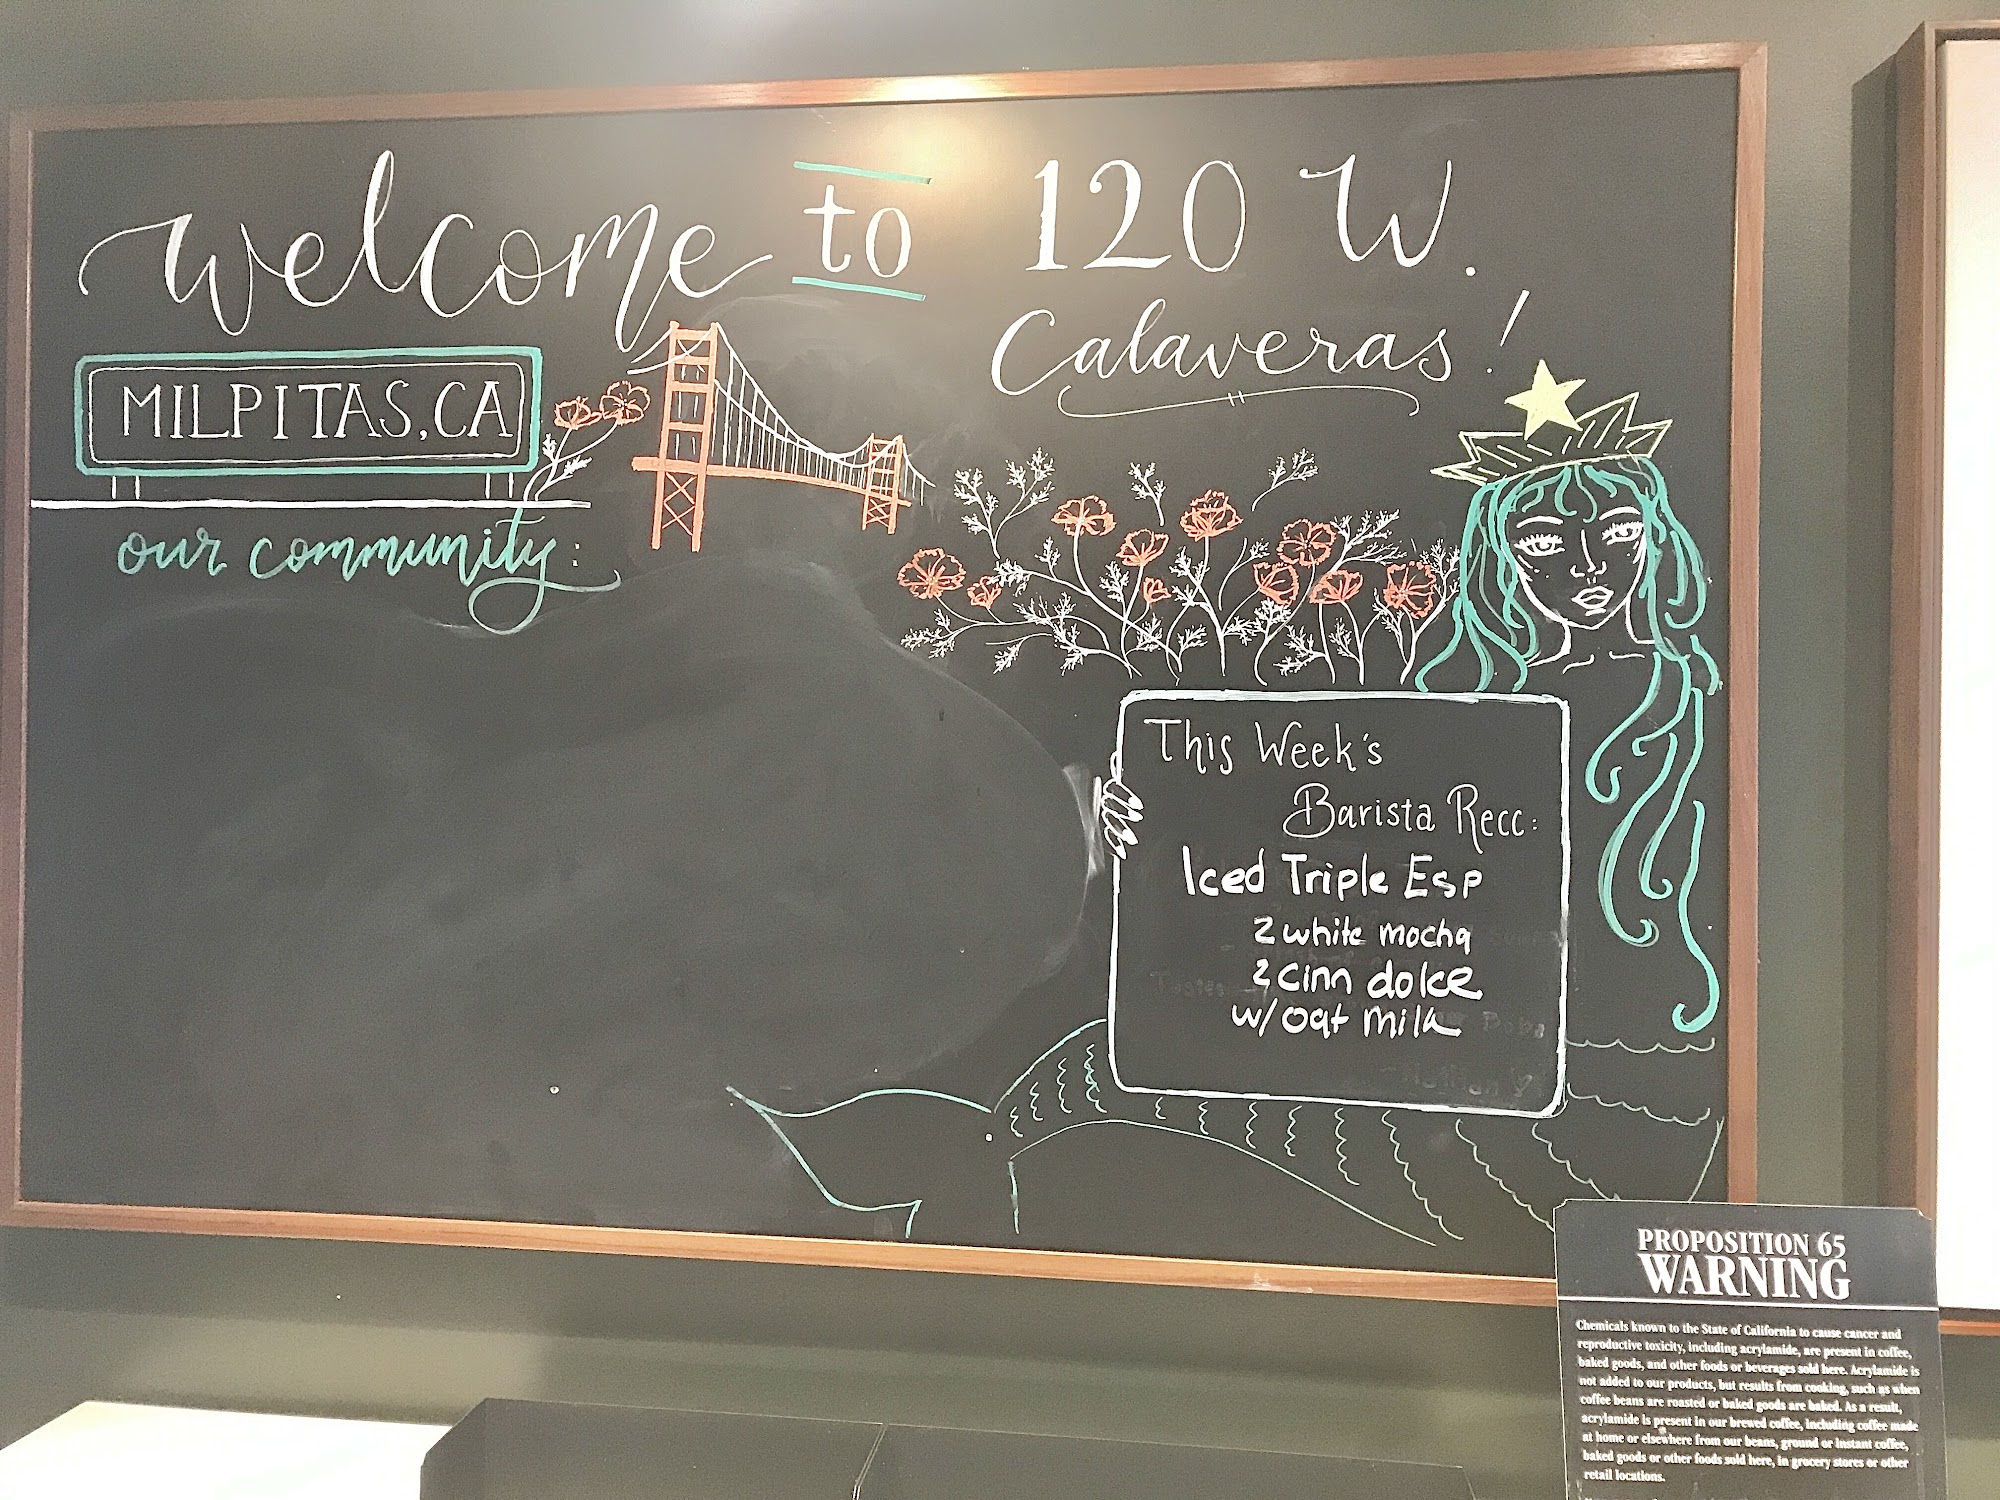 welcome to 120 W.
Calaveras!
MILPITAS, CA
our community:
This Week's
Barista Recc:
Iced Triple Esp
2 white mocha
2 cinn dolce
w/oat milk
PROPOSITION 65
WARNING
Chemicals known to the State of California to cause cancer and
reproductive toxicity, including acrylamide, are present in coffee,
baked goods, and other foods or beverages sold here. Acrylamide is
not added to our products, but results from cooking, such as when
coffee beans are roasted or baked goods are baked. As a result,
acrylamide is present in our brewed coffee, including coffee made
at home or elsewhere from our beans, ground or instant coffee,
baked goods or other foods sold here, in grocery stores or other
retail locations.